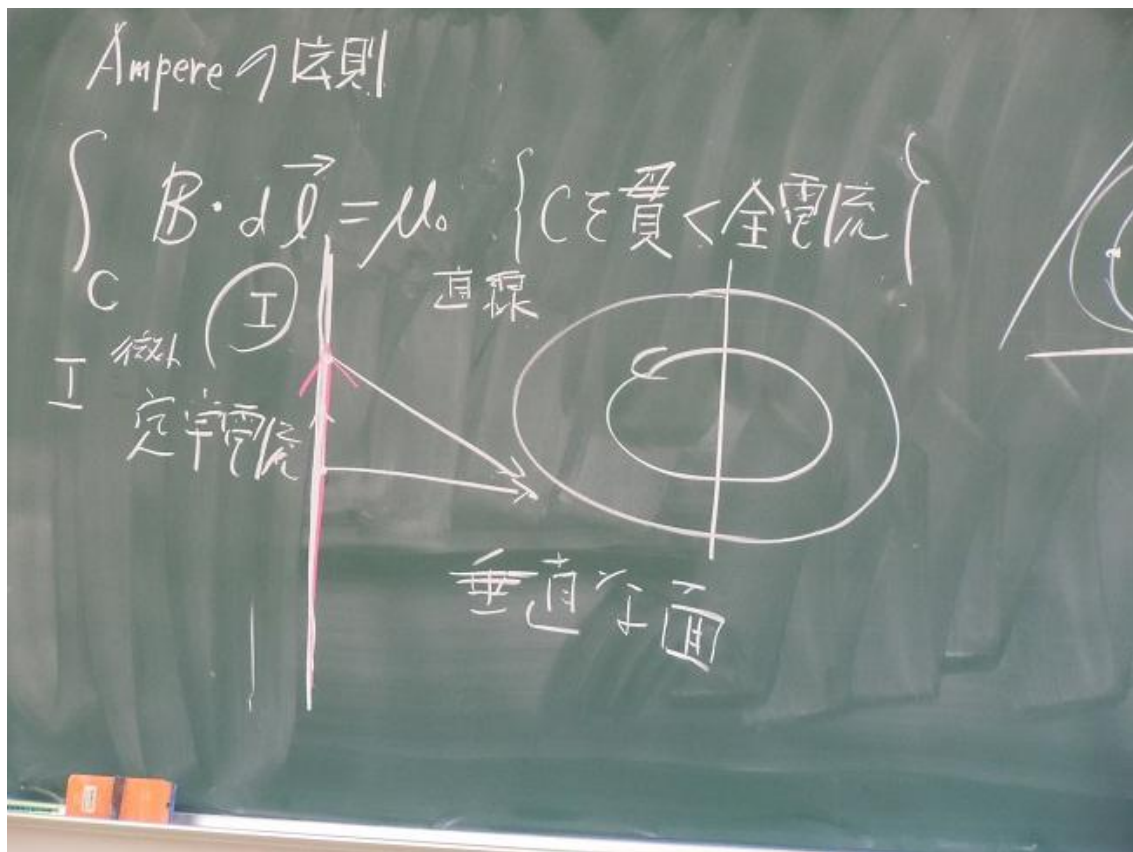 Ampereの法則
∫ B・dl⃗ = μ₀ {Cを貫く全電流}
C
I
直線
I
定常電流
垂直な面